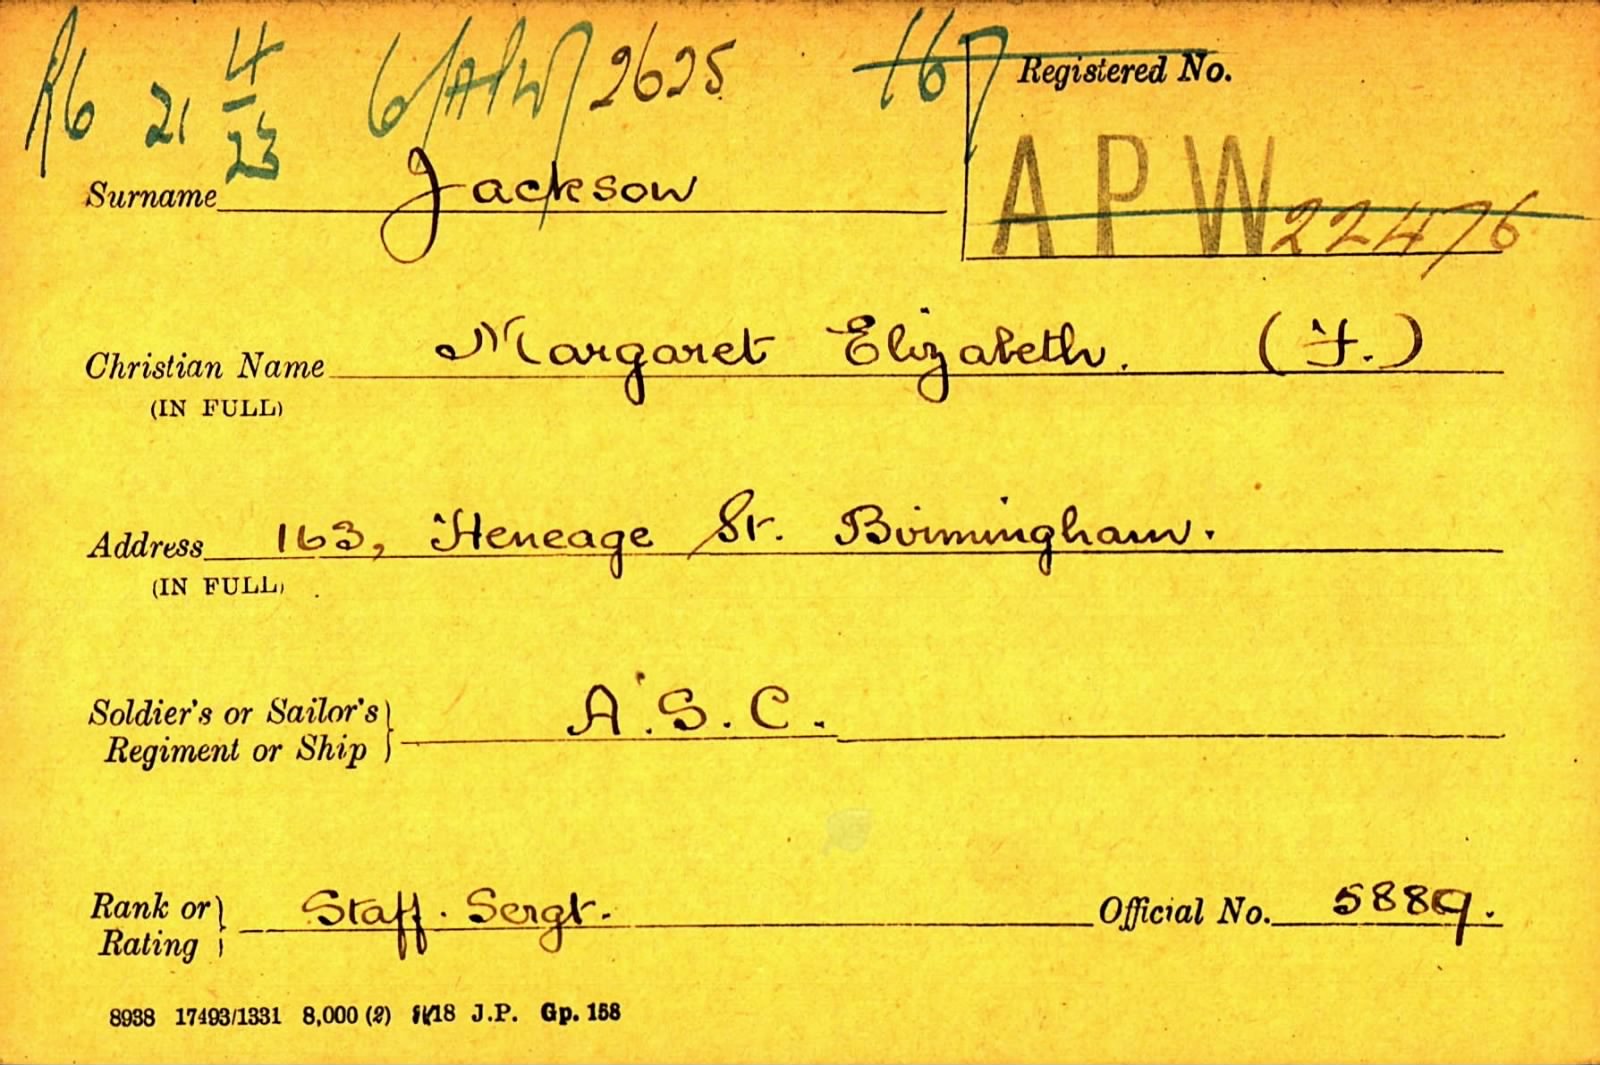 R6 21 4/23 6/APW/2625 167
Registered No.
APW 22476
Surname Jackson
Christian Name Margaret Elizabeth. (F.)
(IN FULL)
Address 163, Heneage St. Birmingham.
(IN FULL)
Soldier's or Sailor's
Regiment or Ship A.S.C.
Rank or
Rating Staff. Sergt. Official No. 5889.
8938 17493/1331 8,000 (2) J.P. Gp. 158